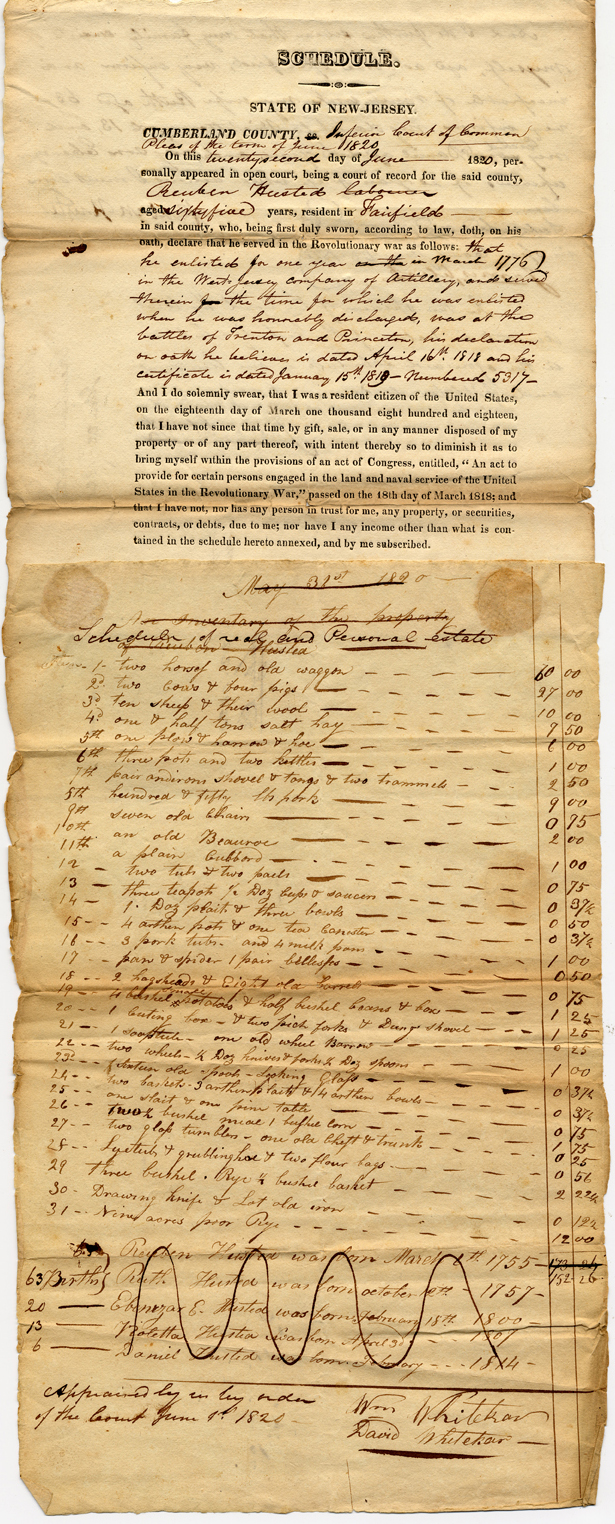 SCHEDULE.
STATE OF NEW-JERSEY.
CUMBERLAND COUNTY, ss. Inferior Court of Common
Pleas of the term of June 1820
On this twenty second day of June 1820, per-
sonally appeared in open court, being a court of record for the said county,
Reuben Husted Labourer
aged sixty five years, resident in Fairfield
in said county, who, being first duly sworn, according to law, doth, on his
oath, declare that he served in the Revolutionary war as follows: that
he enlisted for one year in March 1776
in the West Jersey company of Artillery, and served
therein the time for which he was enlisted
when he was honorably discharged, was at the
battles of Trenton and Princeton, his declaration
on oath he believes is dated April 16th 1818 and his
certificate is dated January 15th 1819 - Numbered 5317 -
And I do solemnly swear, that I was a resident citizen of the United States,
on the eighteenth day of March one thousand eight hundred and eighteen,
that I have not since that time by gift, sale, or in any manner disposed of my
property or of any part thereof, with intent thereby so to diminish it as to
bring myself within the provisions of an act of Congress, entitled, "An act to
provide for certain persons engaged in the land and naval service of the United
States in the Revolutionary War," passed on the 18th day of March 1818; and
that I have not, nor has any person in trust for me, any property, or securities,
contracts, or debts, due to me; nor have I any income other than what is con-
tained in the schedule hereto annexed, and by me subscribed.
May 31st 1820
An Inventory of the property
Schedule of real and Personal estate
of Reuben Husted
1 - two horses and old waggon 60 00
2d two Cows & four pigs 27 00
3d ten sheep & their wool 10 00
4d one & half tons salt hay 7 50
5th one plow & harrow & hoe 6 00
6th three pots and two kettles 1 00
7th pair andirons shovel & tongs & two trammels 2 50
hundred & fifty lbs pork 9 00
9th seven old Chairs 0 75
10th an old Beauroe 2 00
11th a plain Cubbord 1 00
12 - two tubs & two pails 0 75
13 - three teapots ½ Doz Cups & saucers 0 37½
14 - 1. Doz plaits & three bowls 0 50
15 - - 4 arthen pots & one tea Canester 0 37½
16 - - 3 pork tubs and 4 milk pans 1 00
17 - - pan & spider 1 pair bellesps 0 50
18 - - 2 hogsheads & Eight old barrels 0 75
19 - - 4 bushel potatoes & half bushel beans & box 1 25
20 - - 1 Cuting box - & two pich forks & Dung shovel 1 25
21 - - 1 - one old wheel Barrow 0 25
22 - - two wheels - ½ Doz knives & forks ½ Doz spoons 1 00
23d old - Looking Glass 0 37½
24 - - two baskets - 3 arthen plaits & 4 arthen bowls 0 37½
25 - - one slait & one pine table 0 75
26 - - bushel meal 1 bushel corn 1 75
27 - - two glass tumblers - one old Chest & trunk 0 25
28 - - & grubbinghoe & two flour bags 0 56
29 three bushel. Rye ½ bushel basket 2 22½
30 - Drawing knife & Lot old iron 0 12½
31 - - Nine acres poor Rye 12 00
Reuben Husted was born March 1755
152 26
63 Births Ruth Husted was born october 1757
20 Ebenezar E. Husted was born february 18th 1800
13 Violetta Husted was born April 3d 1807
6 Daniel Husted was born February 1814
Appraised by us by order
of the Court June 1st 1820
Wm Whitekar
David Whitekar